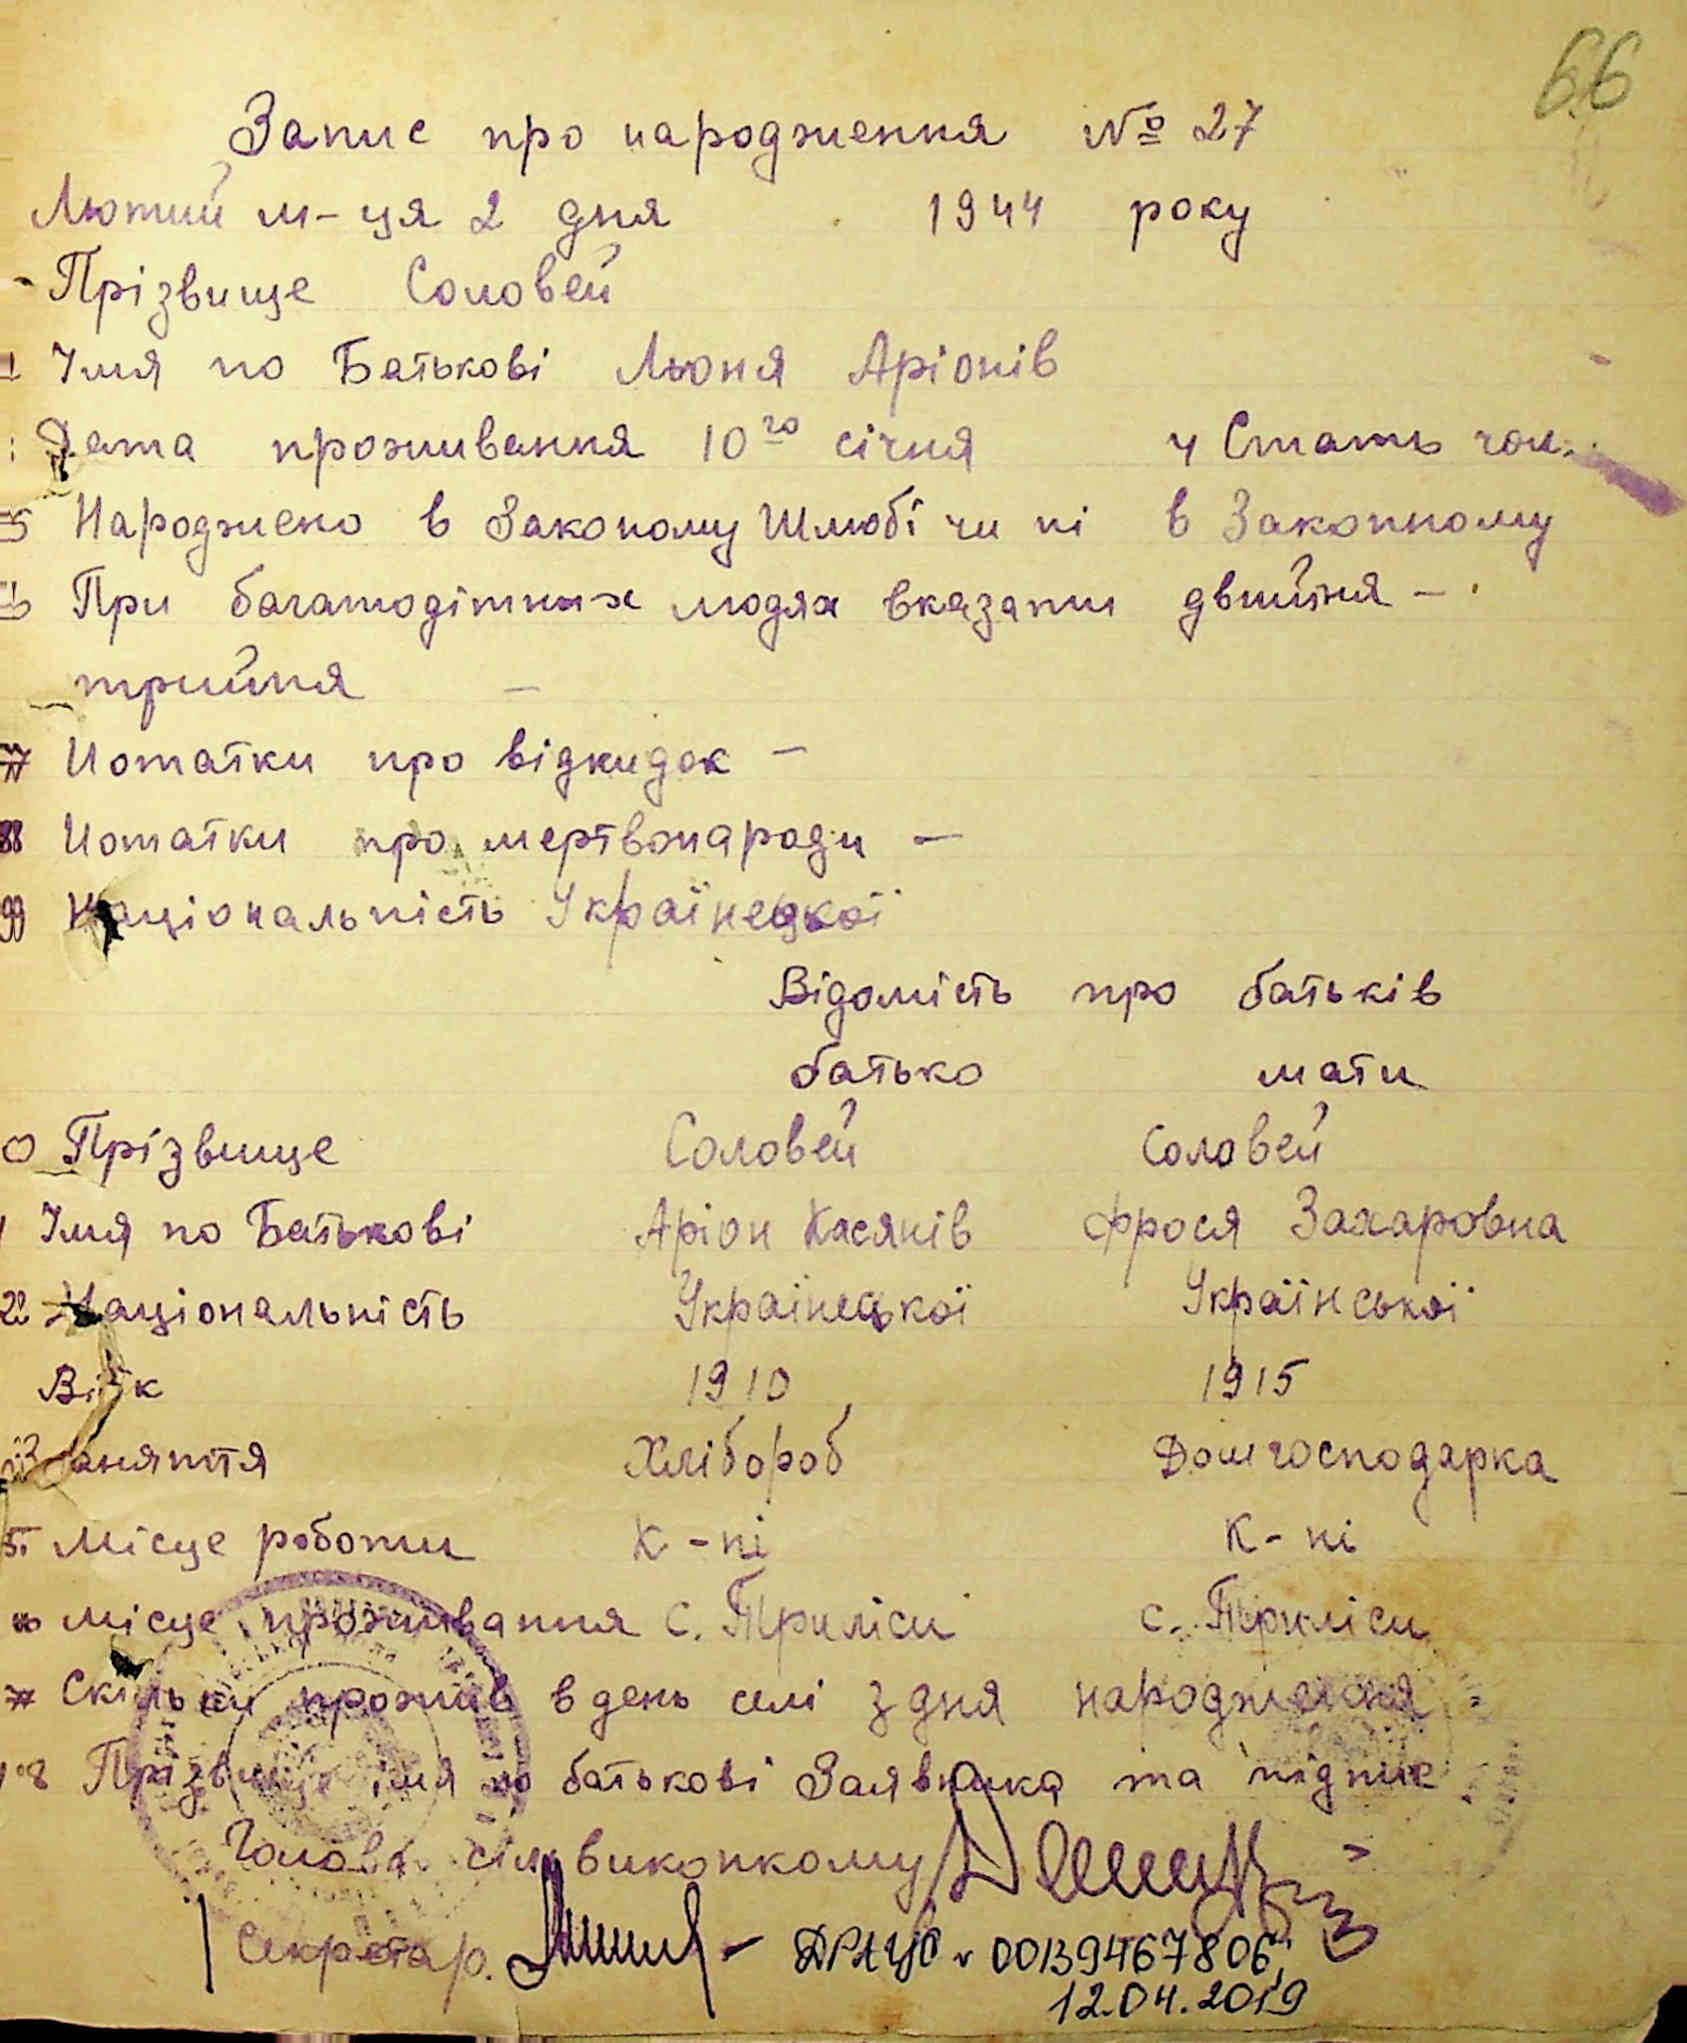 66
Запис про народження № 27
Лютий м-ця 2 дня 1944 року
Прізвище Соловей
Імя по Батькові Льоня Аріонів
Дата проживання 10го січня 4 Стать чол.
5 Народжено в Законому Шлюбі чи ні в Законному
6 При багатодітних людях вказати двийня –
трийня –
7 Нотатки про відкидок –
8 Нотатки про мертвонароди –
9 Національність Українецкої
Відомість про батьків
батько мати
Прізвище Соловей Соловей
Імя по Батькові Аріон Касянів Фрося Захаровна
Національність Українецької Української
Вік 1910 1915
Заняття Хлібороб Домгосподарка
Місце роботи К-пі К-пі
Місце проживання с. Триліси с. Триліси
Скільки прожив в день селі з дня народження
Прізвище імя по батькові Заявника та підпис
Голова сільвиконкому
Секретар.
ДРАЦС 00139467806,
12.04.2019